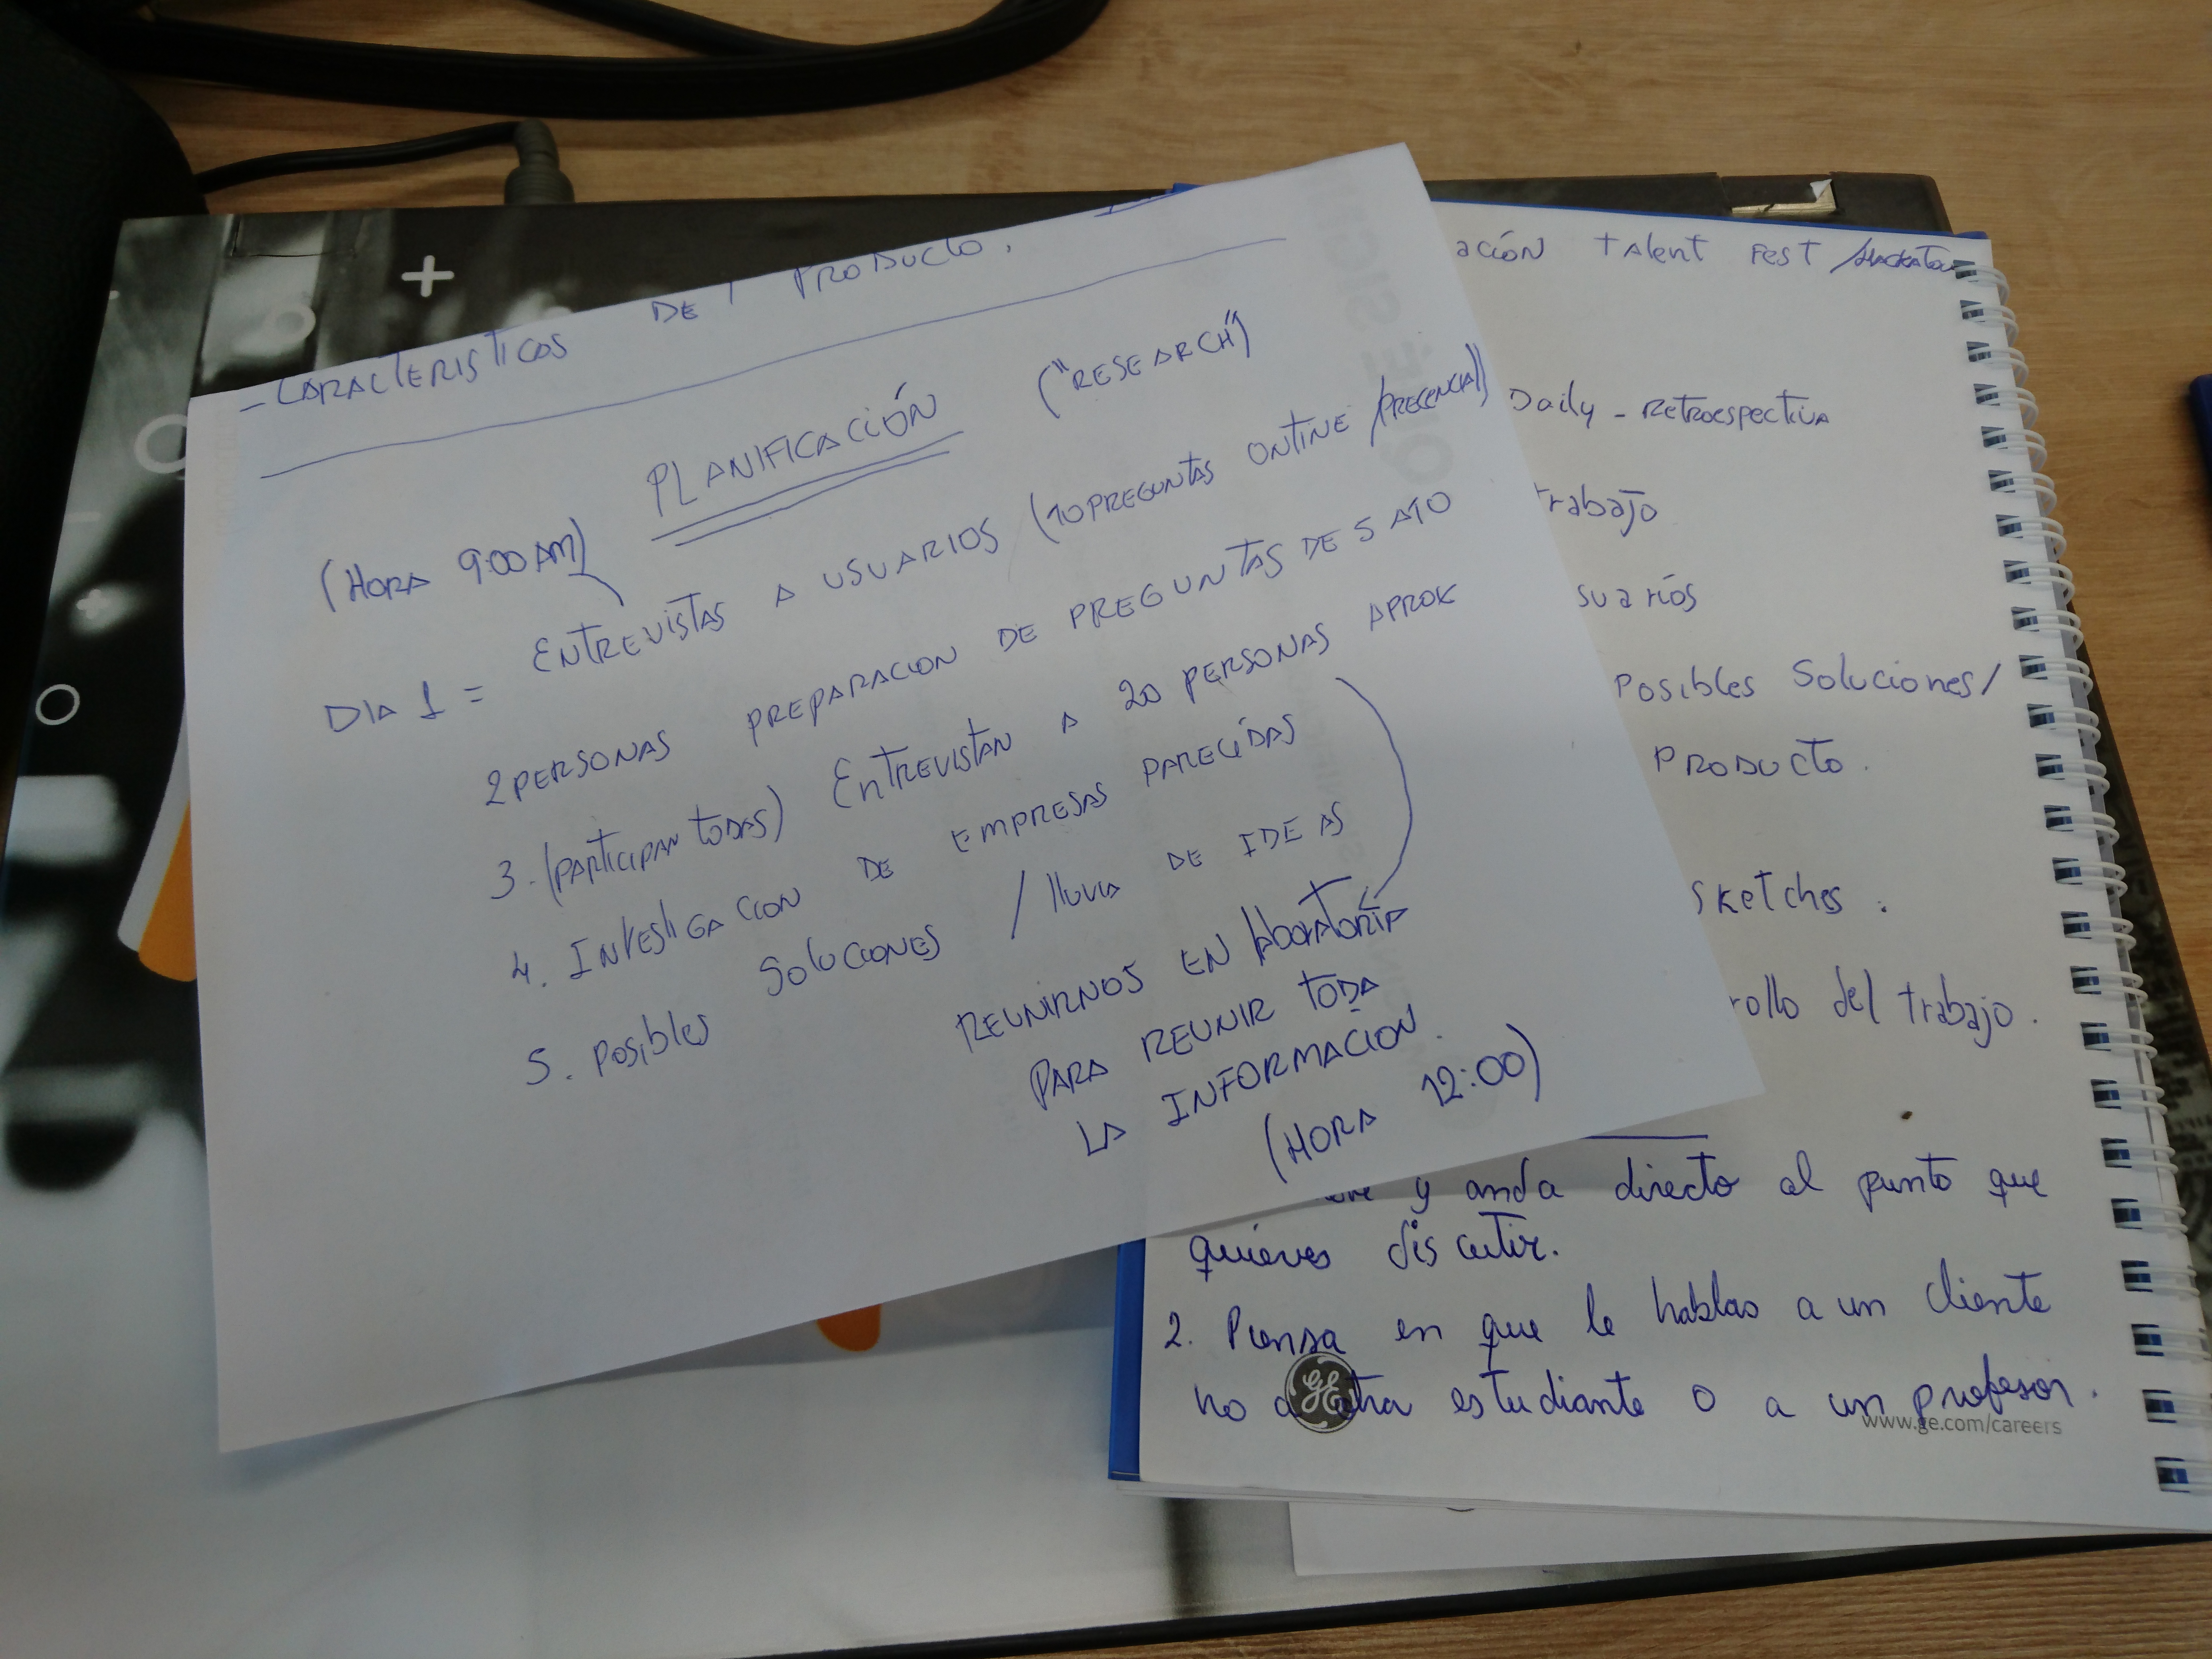 - CARACTERISTICOS DE PRODUCTO.
PLANIFICACIÓN ("RESEARCH")
(HORA 9:00 AM)
DIA 1 = ENTREVISTAS A USUARIOS (10 PREGUNTAS ONTINE /PRECENCIAL)
2 PERSONAS PREPARACION DE PREGUNTAS DE 5 A 10
3. (PARTICIPAN TODAS) ENTREVISTAN A 20 PERSONAS APROX
4. INVESTIGACION DE EMPRESAS PARECÍDAS
5. POSIbles SOLUCIONES / lluvia DE IDEAS
REUNIRNOS EN
PARA REUNIR TODA
LA INFORMACION.
(HORA 12:00)
ación talent Fest /
Daily - Retroespectiva
trabajo
suarios
Posibles Soluciones/
PRODUCTO.
Sketches.
rollo del trabajo.
y anda directo al punto que
quieres discutir.
2. Piensa en que le hablas a un cliente
no a otra estudiante o a un profesor.
GE
www.ge.com/careers